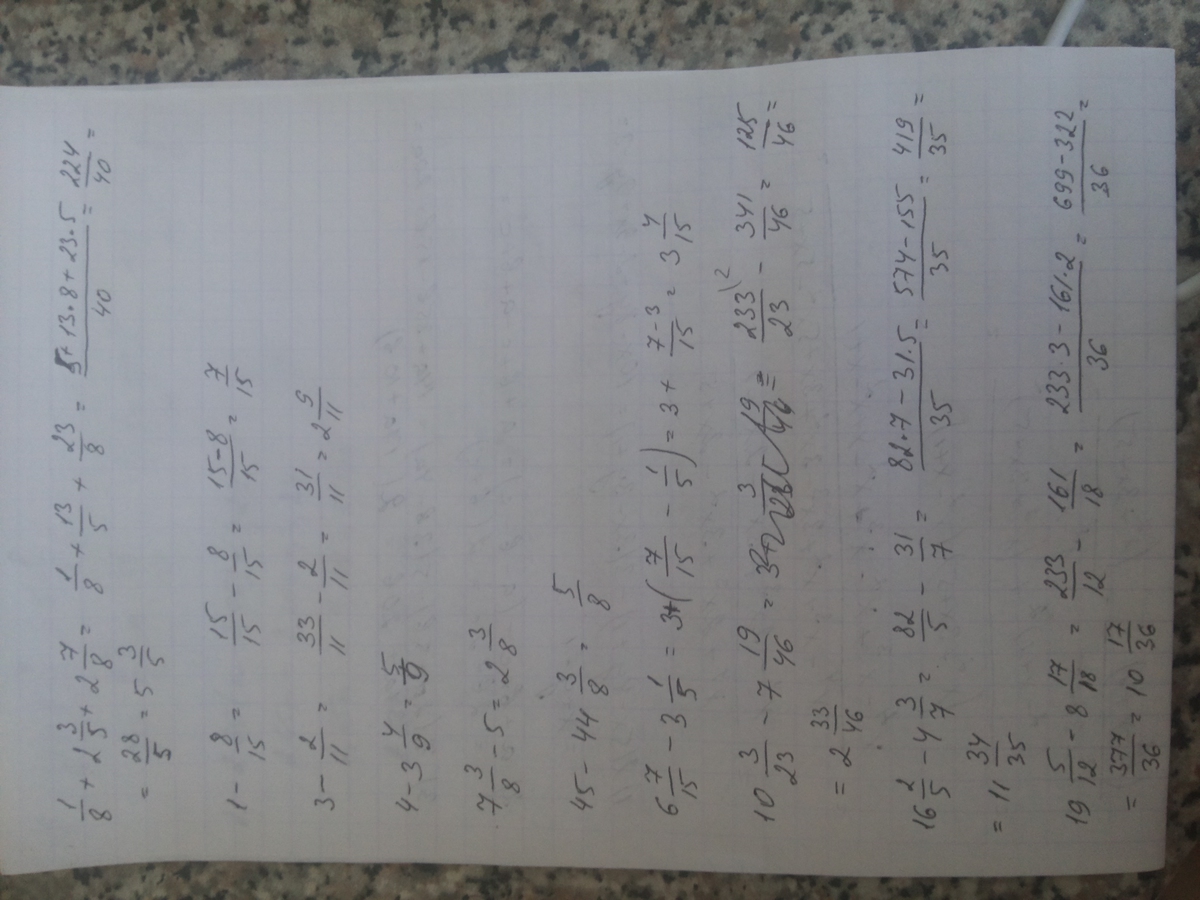 1/8 + 2 3/5 + 2 7/8 = 1/8 + 13/5 + 23/8 = (5 + 13·8 + 23·5)/40 = 224/40 =
= 28/5 = 5 3/5
1 - 8/15 = 15/15 - 8/15 = (15-8)/15 = 7/15
3 - 2/11 = 33/11 - 2/11 = 31/11 = 2 9/11
4 - 3 4/9 = 5/9
7 3/8 - 5 = 2 3/8
45 - 44 3/8 = 5/8
6 7/15 - 3 1/5 = 3 + (7/15 - 1/5) = 3 + (7-3)/15 = 3 4/15
10 3/23 - 7 19/46 = 233/23 \2 - 341/46 = 125/46 =
= 2 33/46
16 2/5 - 4 3/7 = 82/5 - 31/7 = (82·7 - 31·5)/35 = (574-155)/35 = 419/35 =
= 11 34/35
19 5/12 - 8 17/18 = 233/12 - 161/18 = (233·3 - 161·2)/36 = (699-322)/36 =
= 377/36 = 10 17/36